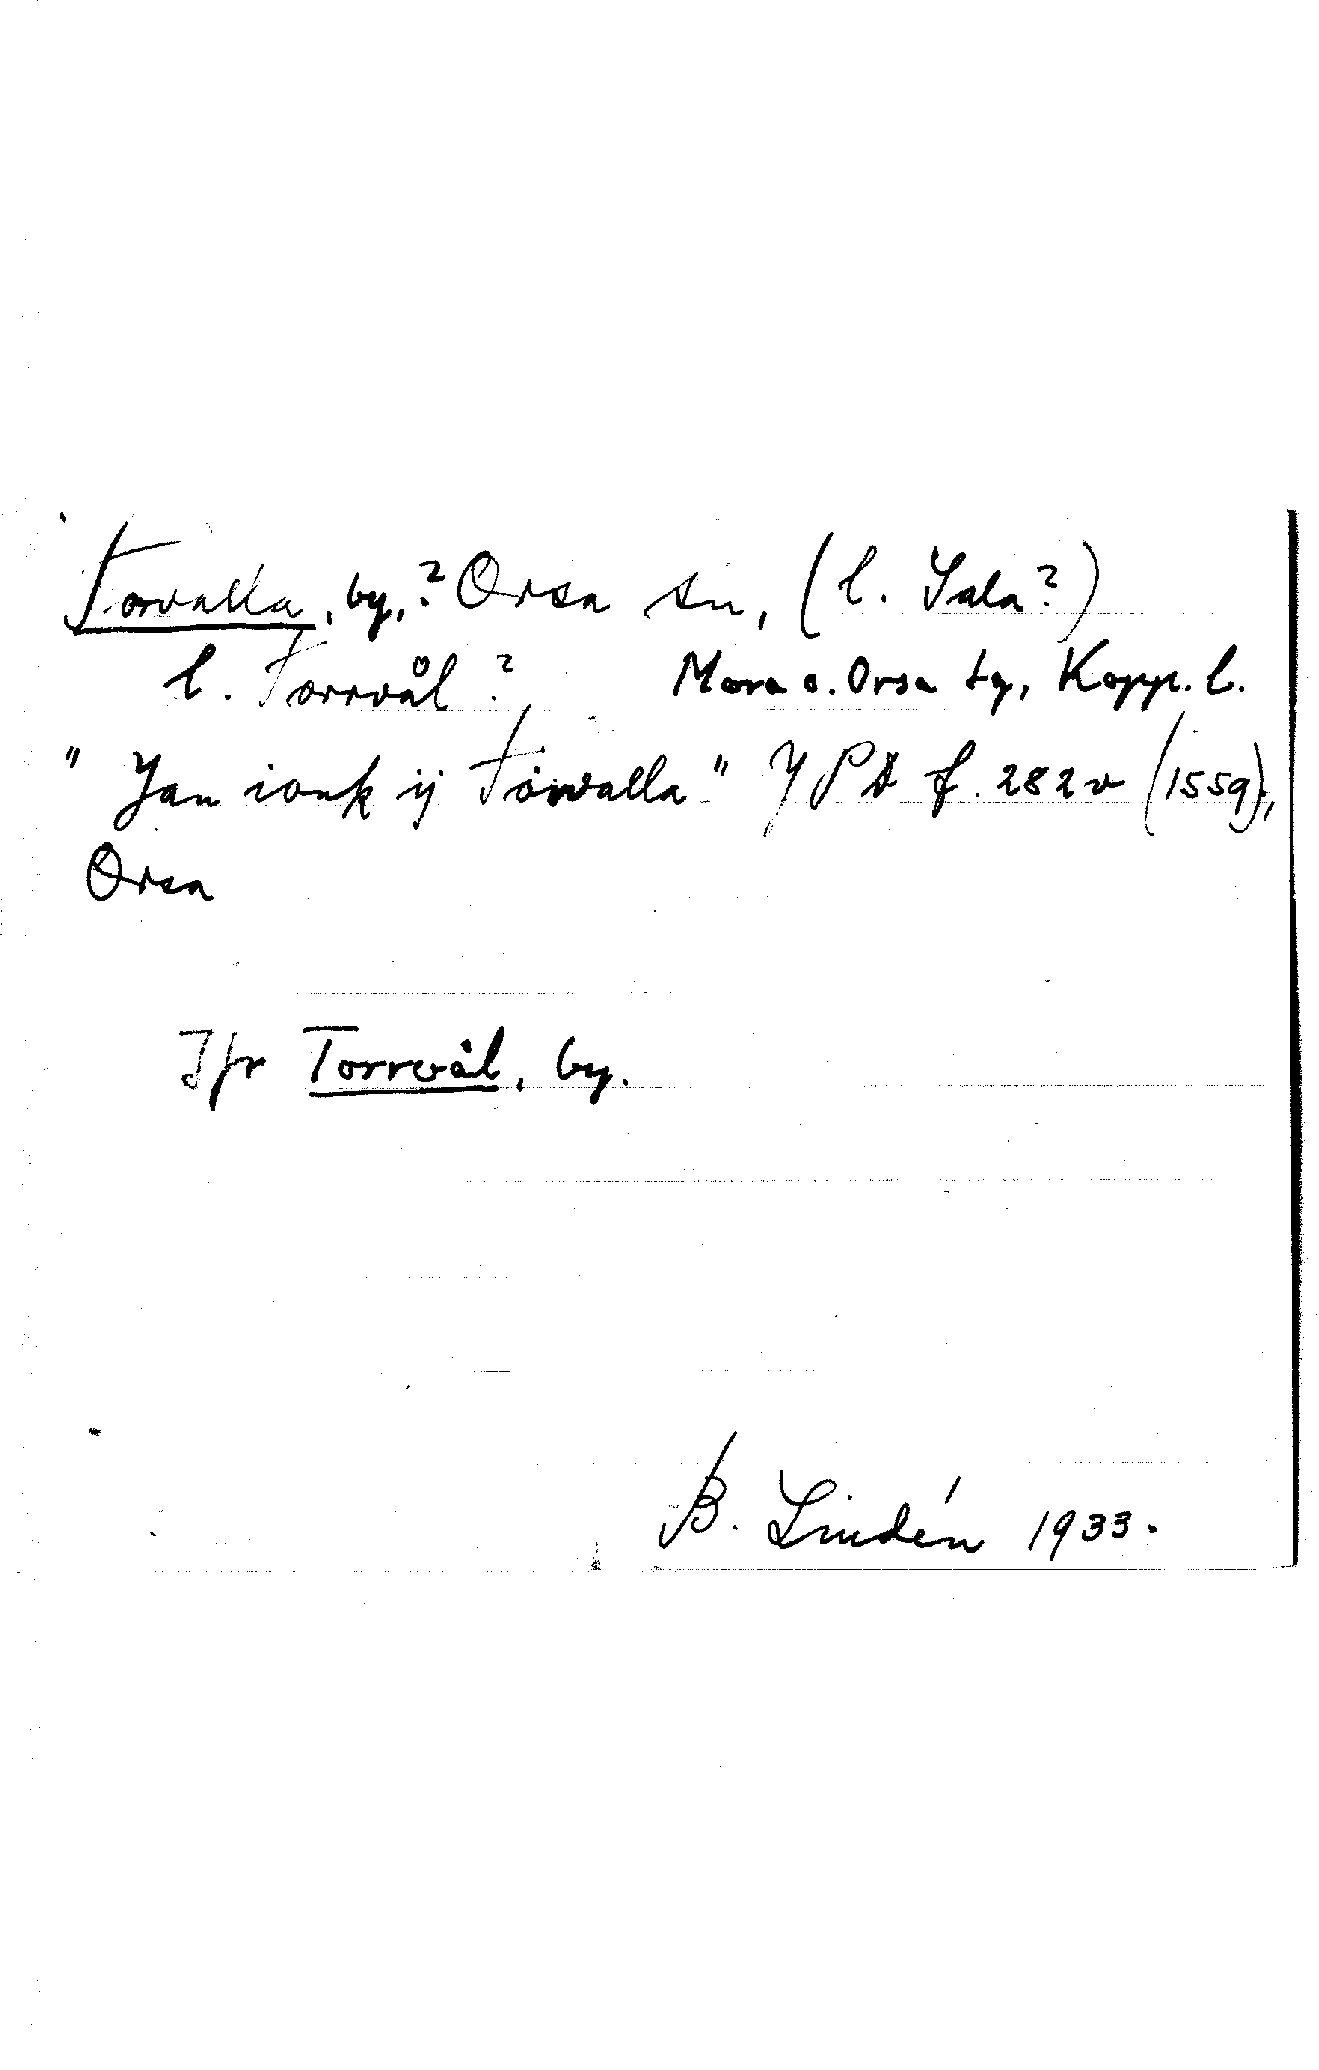 Torvalla, by,? Orsa sn, (l. Sala?)
l. Torrvål? Mora o. Orsa tg, Kopp. l.
" Jan ionk ij Torvalla" f. 282v (1559),
Orsa
Jfr Torrvål, by.
B. Lindén 1933.